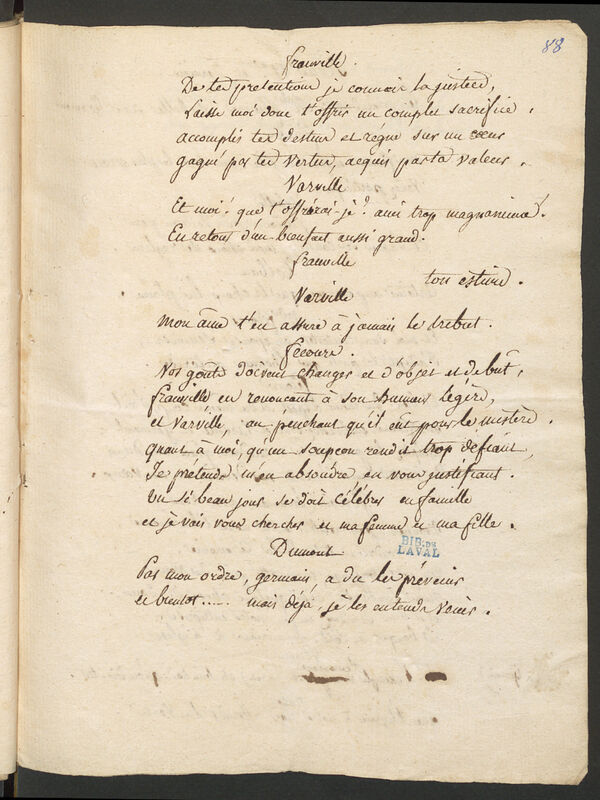 88
franville.
De tes pretentions je connois la justice,
Laisse moi donc t'offrir un complet sacrifice.
accomplis tes destins et règne sur un cœur
gagné par tes vertus, acquis par ta valeur.
Varville
Et moi! que t'offrirai-je? ami trop magnanime!
En retour d'un bienfait aussi grand.
franville
ton estime.
Varville
mon âme t'en assure à jamais le tribut.
Nos goûts doivent changer et d'objet et de but,
franville en renonçant à son humeur légère,
et Varville, au penchant qu'il eût pour le mistère.
quant à moi, qu'un soupçon rendit trop défiant,
Je pretends m'en absoudre en vous justifiant.
Un si beau jour se doit célébrer en famille
et je vais vous chercher et ma femme et ma fille.
Dumont
BIB. DE
LAVAL
Par mon ordre, germain, a du les prévenir
et bientot..... mais déjà, je les entends venir.